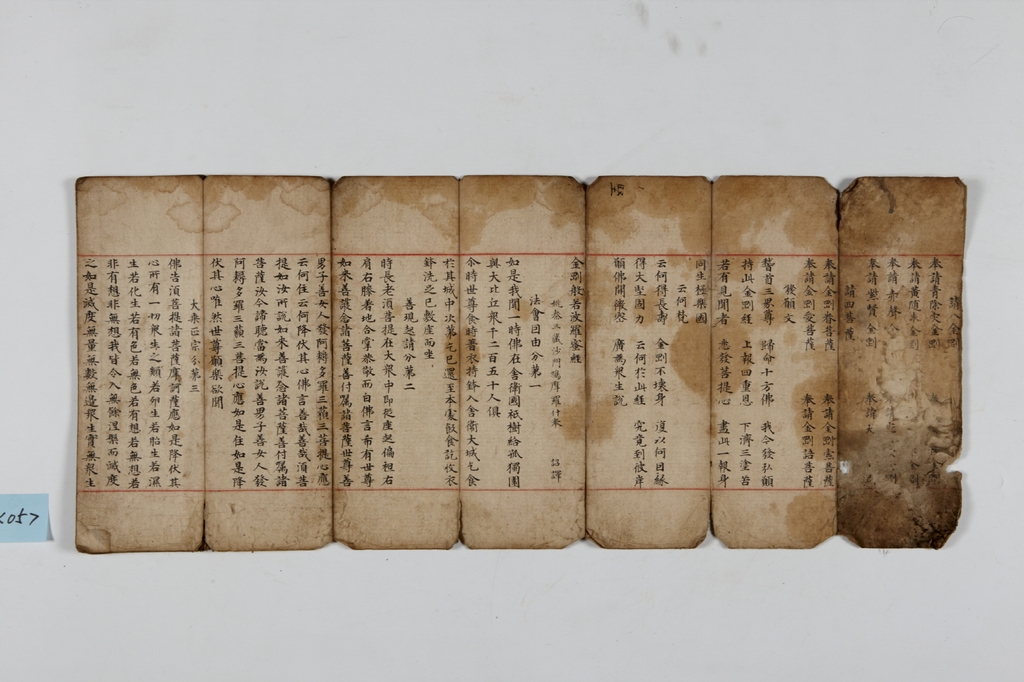 請八金剛
奉請青除灾金剛
奉請黃隨求金剛
奉請赤聲金剛
奉請紫賢金剛 奉請大
請四菩薩
奉請金剛眷菩薩 奉請金剛索菩薩
奉請金剛愛菩薩 奉請金剛語菩薩
後願文
稽首三界尊 歸命十方佛 我今發弘願
持此金剛經 上報四重恩 下濟三塗苦
若有見聞者 悉發菩提心 盡此一報身
同生極樂國
云何梵
云何得長壽 金剛不壞身 復以何因緣
得大堅固力 云何於此經 究竟到彼岸
願佛開微密 廣為衆生說
金剛般若波羅蜜經
姚秦三藏沙門鳩摩羅什奉 詔譯
法會因由分第一
如是我聞一時佛在舍衛國祇樹給孤獨園
與大比丘衆千二百五十人俱
尒時世尊食時著衣持鉢入舍衛大城乞食
於其城中次第乞已還至本處飯食訖收衣
鉢洗足已敷座而坐
善現起請分第二
時長老湏菩提在大衆中即從座起偏袒右
肩右膝着地合掌恭敬而白佛言希有世尊
如来善護念諸菩薩善付囑諸菩薩世尊善
男子善女人發阿耨多羅三藐三菩提心應
云何住云何降伏其心佛言善哉善哉湏菩
提如汝所說如来善護念諸菩薩善付囑諸
菩薩汝今諦聽當為汝說善男子善女人發
阿耨多羅三藐三菩提心應如是住如是降
伏其心唯然世尊願樂欲聞
大乘正宗分第三
佛告湏菩提諸菩薩摩訶薩應如是降伏其
心所有一切衆生之類若卵生若胎生若濕
生若化生若有色若無色若有想若無想若
非有想非無想我皆令入無餘涅槃而滅度
之如是滅度無量無數無邊衆生實無衆生
057